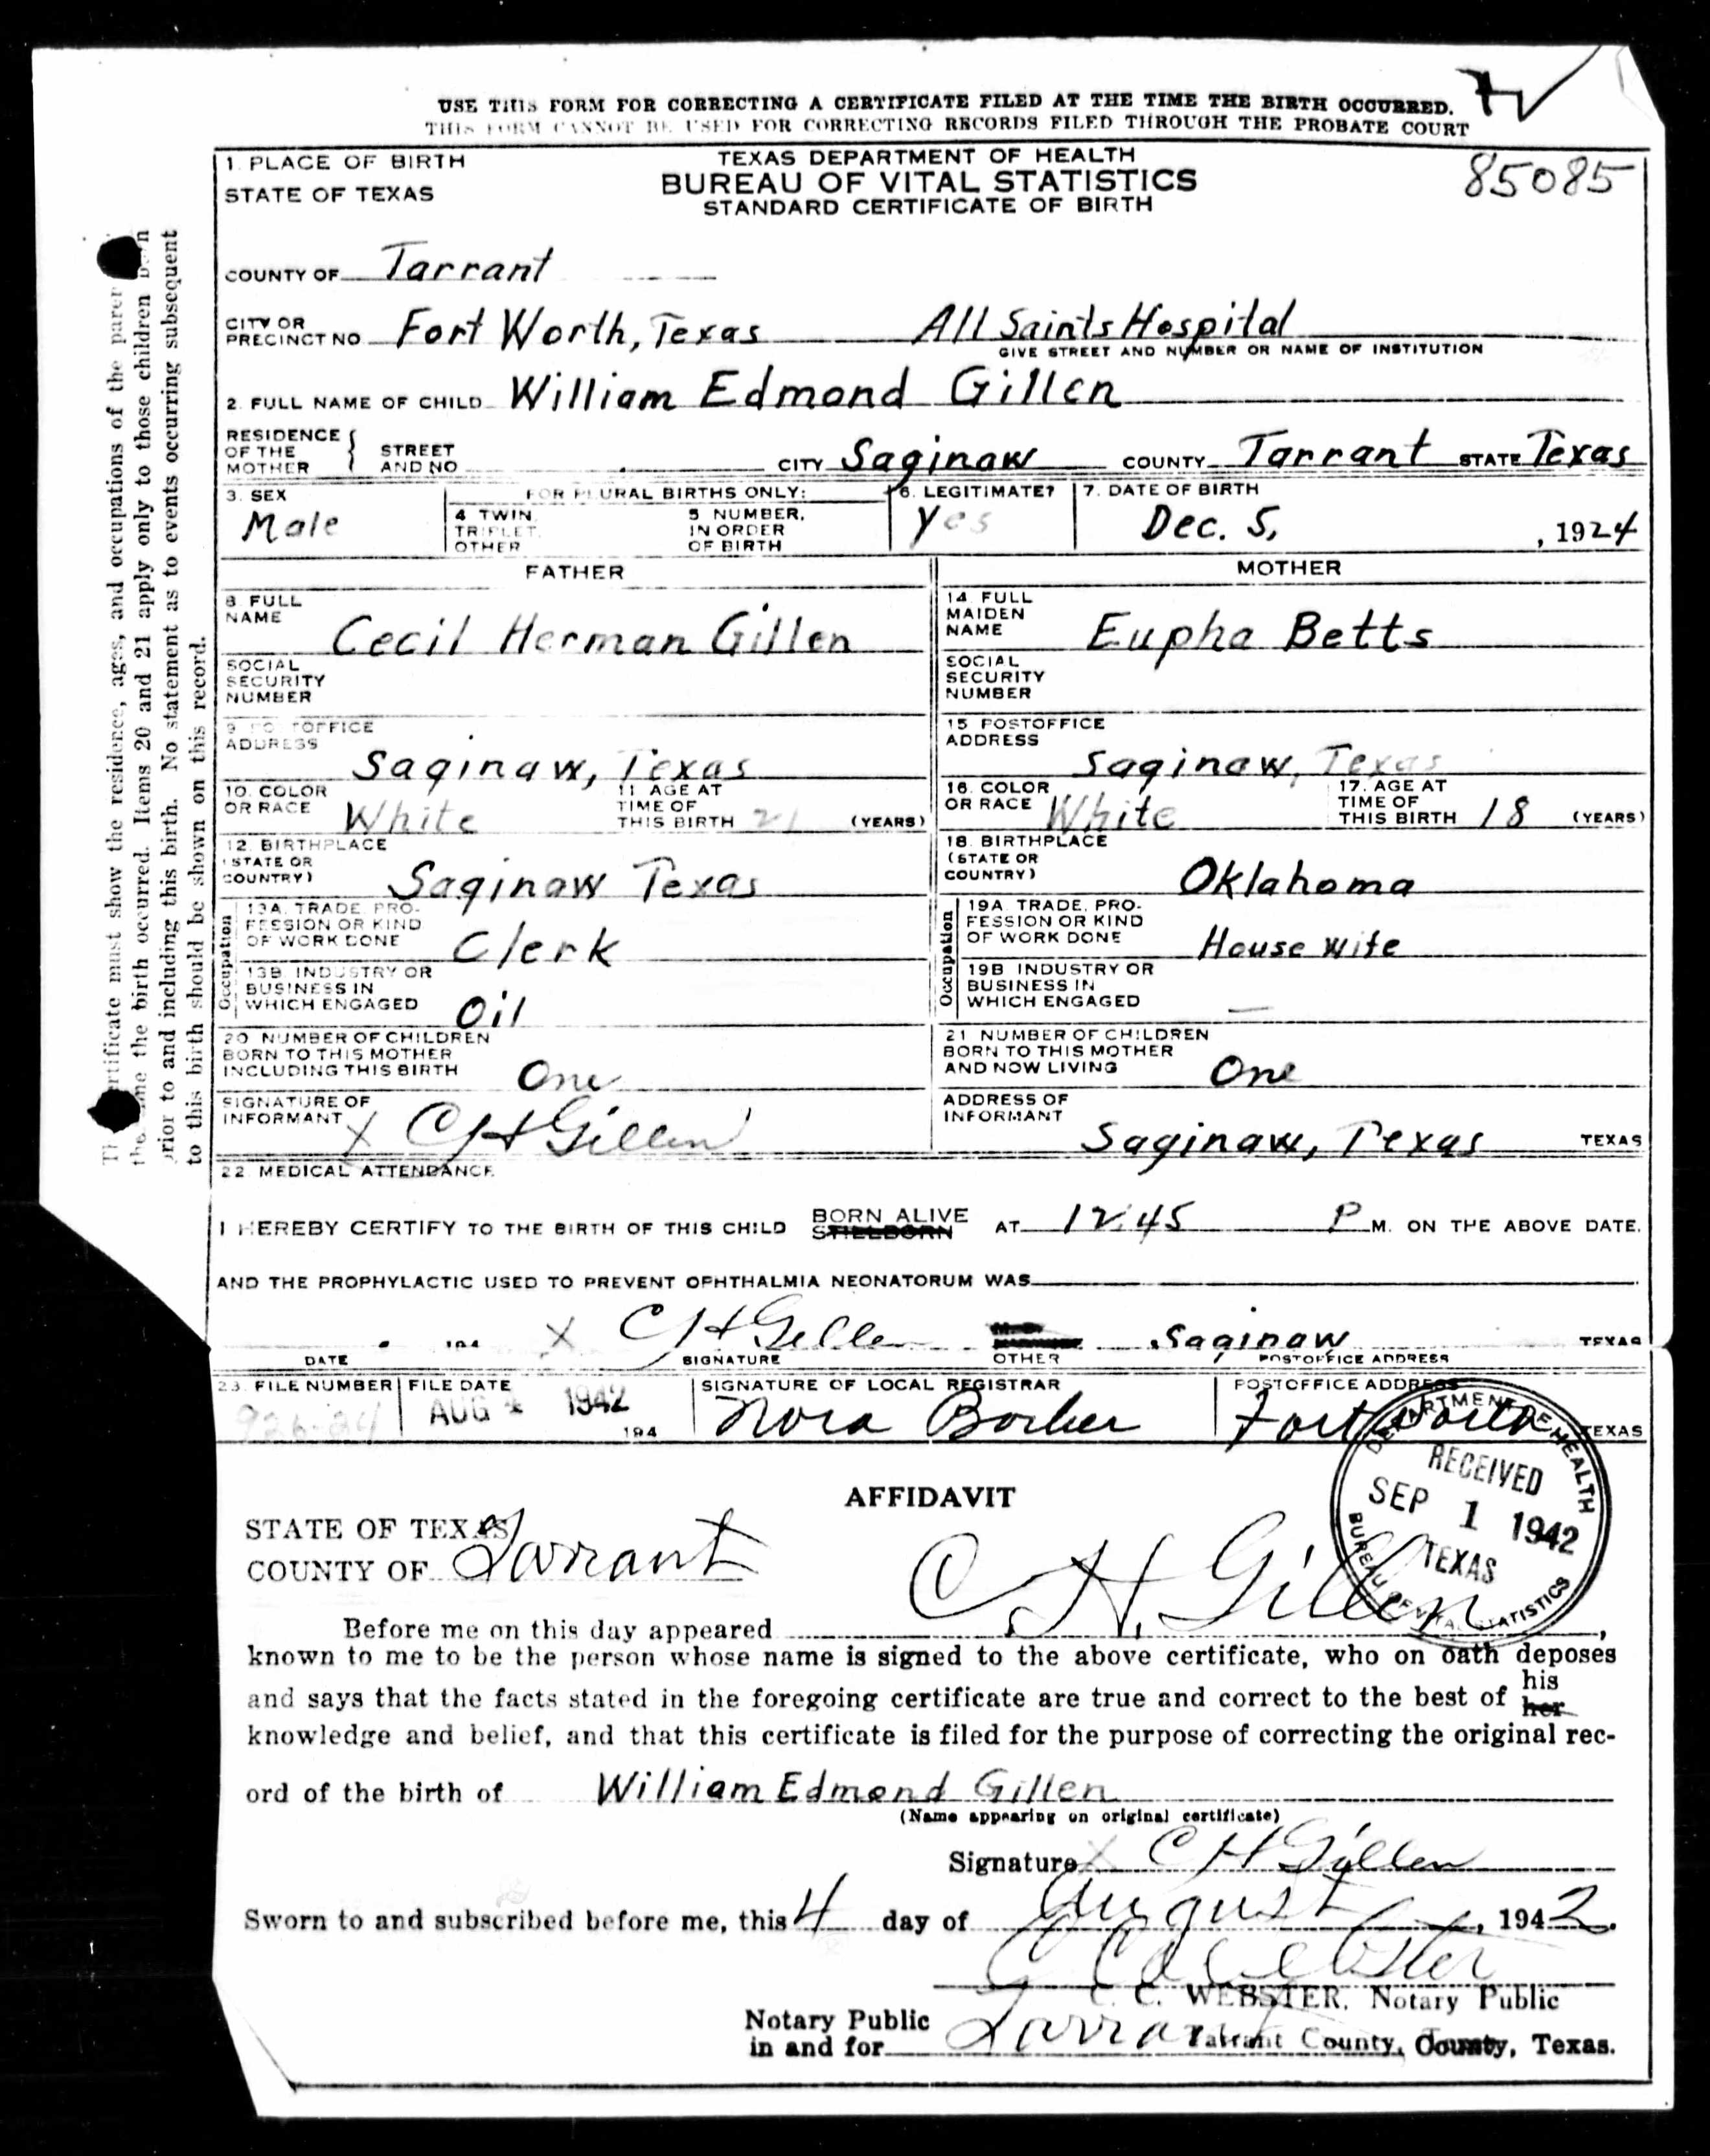 USE THIS FORM FOR CORRECTING A CERTIFICATE FILED AT THE TIME THE BIRTH OCCURRED.
THIS FORM CANNOT BE USED FOR CORRECTING RECORDS FILED THROUGH THE PROBATE COURT
1. PLACE OF BIRTH
STATE OF TEXAS
TEXAS DEPARTMENT OF HEALTH
BUREAU OF VITAL STATISTICS
STANDARD CERTIFICATE OF BIRTH
85085
COUNTY OF Tarrant
CITY OR PRECINCT NO Fort Worth, Texas All Saints Hospital
GIVE STREET AND NUMBER OR NAME OF INSTITUTION
2. FULL NAME OF CHILD William Edmond Gillen
RESIDENCE OF THE MOTHER { STREET AND NO CITY Saginaw COUNTY Tarrant STATE Texas
3. SEX Male
FOR PLURAL BIRTHS ONLY:
4 TWIN, TRIPLET, OTHER
5 NUMBER, IN ORDER OF BIRTH
6. LEGITIMATE? Yes
7. DATE OF BIRTH Dec. 5, , 1924
FATHER
8. FULL NAME Cecil Herman Gillen
SOCIAL SECURITY NUMBER
9 POSTOFFICE ADDRESS Saginaw, Texas
10. COLOR OR RACE White
11 AGE AT TIME OF THIS BIRTH 21 (YEARS)
12. BIRTHPLACE (STATE OR COUNTRY) Saginaw Texas
Occupation
13A. TRADE, PROFESSION OR KIND OF WORK DONE Clerk
13B. INDUSTRY OR BUSINESS IN WHICH ENGAGED Oil
20 NUMBER OF CHILDREN BORN TO THIS MOTHER INCLUDING THIS BIRTH One
SIGNATURE OF INFORMANT X C H Gillen
MOTHER
14. FULL MAIDEN NAME Eupha Betts
SOCIAL SECURITY NUMBER
15 POSTOFFICE ADDRESS Saginaw, Texas
16. COLOR OR RACE White
17. AGE AT TIME OF THIS BIRTH 18 (YEARS)
18. BIRTHPLACE (STATE OR COUNTRY) Oklahoma
Occupation
19A. TRADE, PROFESSION OR KIND OF WORK DONE House wife
19B INDUSTRY OR BUSINESS IN WHICH ENGAGED —
21 NUMBER OF CHILDREN BORN TO THIS MOTHER AND NOW LIVING One
ADDRESS OF INFORMANT Saginaw, Texas TEXAS
22 MEDICAL ATTENDANCE
I HEREBY CERTIFY TO THE BIRTH OF THIS CHILD BORN ALIVE STILLBORN AT 12:45 P M. ON THE ABOVE DATE.
AND THE PROPHYLACTIC USED TO PREVENT OPHTHALMIA NEONATORUM WAS
194 X C H Gillen Saginaw TEXAS
DATE SIGNATURE OTHER POSTOFFICE ADDRESS
23. FILE NUMBER 926-24
FILE DATE AUG 4 1942 194
SIGNATURE OF LOCAL REGISTRAR Nora Barber
POSTOFFICE ADDRESS Fort Worth TEXAS
DEPARTMENT OF HEALTH
RECEIVED
SEP 1 1942
TEXAS
BUREAU OF VITAL STATISTICS
AFFIDAVIT
STATE OF TEXAS
COUNTY OF Tarrant
Before me on this day appeared C H. Gillen,
known to me to be the person whose name is signed to the above certificate, who on oath deposes
and says that the facts stated in the foregoing certificate are true and correct to the best of his her
knowledge and belief, and that this certificate is filed for the purpose of correcting the original rec-
ord of the birth of William Edmond Gillen
(Name appearing on original certificate)
Signature X C H Gillen
Sworn to and subscribed before me, this 4 day of August, 1942.
C C Webster
C. C. WEBSTER, Notary Public
Notary Public in and for Tarrant Tarrant County, County, Texas.
certificate must show the residence, ages, and occupations of the
the birth occurred. Items 20 and 21 apply only to those children born
prior to and including this birth. No statement as to events occurring subsequent
to this birth should be shown on this record.